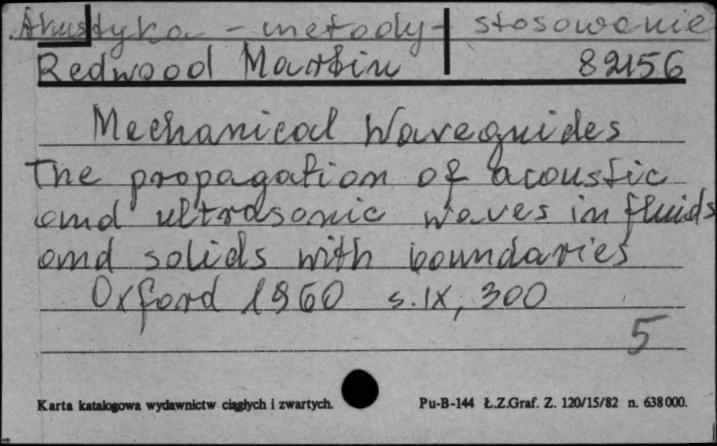 Akustyka - metody - stosowanie
Redwood Martin 82156
Mechanical Waveguides
The propagation of acoustic
and ultrasonic waves in fluids
and solids with boundaries
Oxford 1960 s. IX, 300
5
Karta katalogowa wydawnictw ciągłych i zwartych. Pu-B-144 Ł.Z.Graf. Z. 120/15/82 n. 638000.